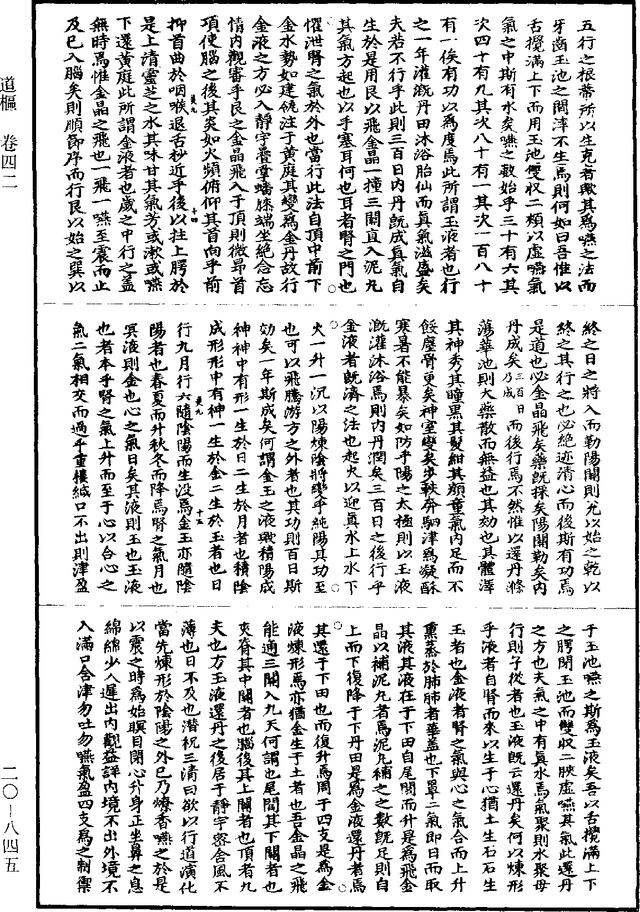 五行之根蒂所以生克者歟其爲嚥之法而
牙齒玉池之間津不生焉則何如曰吾惟以
舌攪滿上下而用玉池雙收二頰以虛嚥氣
氣之中斯有水矣嚥之數始乎三十有六其
次四十有九其次八十有一其次一百八十
有一俟有功以爲度焉此所謂玉液者也行
之一年灌溉丹田沐浴胎仙而眞氣滋盛矣
夫若不行乎此則三百日内丹既成眞氣自
生於是用艮以飛金晶一撞三關直入泥丸
其氣方起也以手塞耳何也耳者腎之門也
懼泄腎之氣於外也當行此法自頂中前下
金水勢如建瓴注于黄庭其變爲金丹故行
金液之方必入靜宇疊掌蟠膝端坐絶念忘
情内觀審乎艮之金晶飛入于頂則微昂首
項使腦之後其炎如火頻俯仰其首向乎前
抑首曲於咽喉退舌杪近乎後以拄上腭於
是上清靈芝之水其味甘其氣芳或漱或嚥
下還黄庭此所謂金液者也歲之中行之蓋
無時焉惟金晶之飛也一飛一嚥至震而止
及已入腦矣則順節序而行艮以始之巽以
終之日之將入而勒陽關則兌以始之乾以
終之其行之也必絶迹清心而後斯有功焉
是道也必金晶飛矣藥既採矣陽關勒矣内
丹成矣三百日乃成而後行焉不然惟以還丹滌
蕩華池則大藥散而無益也其効也其體澤
其神秀其瞳黑其髮紺其顔童氣内足而不
餒塵骨更矣神室變矣步軼奔駟津爲凝酥
寒暑不能暴矣如防乎陽之太極則以玉液
溉灌沐浴焉則内丹潤矣三百日之後行乎
金液者既濟之法也起火以迎眞水上水下
火一升一沉以陽煉陰將變乎純陽其功至
也可以飛騰游方之外者也其功則百日斯
効矣一年斯成矣何謂金玉之液歟積陽成
神神中有形一生於日二生於月者也積陰
成形形中有神一生於金二生於玉者也日
行九月行六隨陰陽而生没焉金玉亦隨陰
陽者也春夏而升秋冬而降焉腎之氣月也
其液則金也心之氣日矣其液則玉也玉液
也者本乎腎之氣上升而至于心以合心之
氣二氣相交而過乎重樓緘口不出則津盈
于玉池嚥之斯爲玉液矣吾以舌攪滿上下
之腭閉玉池而雙収二胦虛嚥其氣此還丹
之方也夫氣之中有眞水焉氣聚則水聚母
行則子從者也玉液既云還丹矣何以煉形
乎液者自腎而來以生于心猶土生石石生
玉者也金液者腎之氣與心之氣合而上升
熏蒸於肺肺者華蓋也下罩二氣即日而取
其液其液在于下田自尾閭而升是爲飛金
晶以補泥丸者焉泥丸補之之數既足則自
上而下復降于下丹田是爲金液還丹者焉
其還于下田也而復升焉周于四支是爲金
液煉形焉亦猶金生于土者也吾金晶之飛
能通三關入九天何謂也尾閭其下關者也
夾脊其中關者也腦後其上關者也頂者九
夫也方玉液還丹之後居于靜宇密舍風不
薄也日不及也潛祝三清曰欲以行道演化
當先煉形於陰陽之外已乃燎香嚥之於是
以震之時爲始瞑目閉心升身正坐鼻之息
綿綿少入遲出内觀益詳内境不出外境不
入滿口含津勿吐勿嚥氣盈四支爲之制禦
道樞　卷四二
二〇-八四五